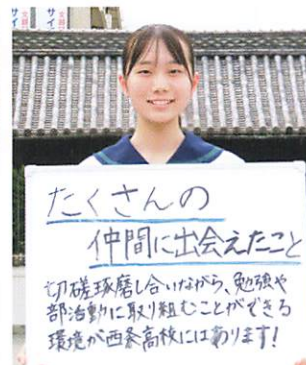 たくさんの
仲間に出会えたこと
切磋琢磨し合いながら、勉強や
部活動に取り組むことができる
環境が西条高校にはあります!